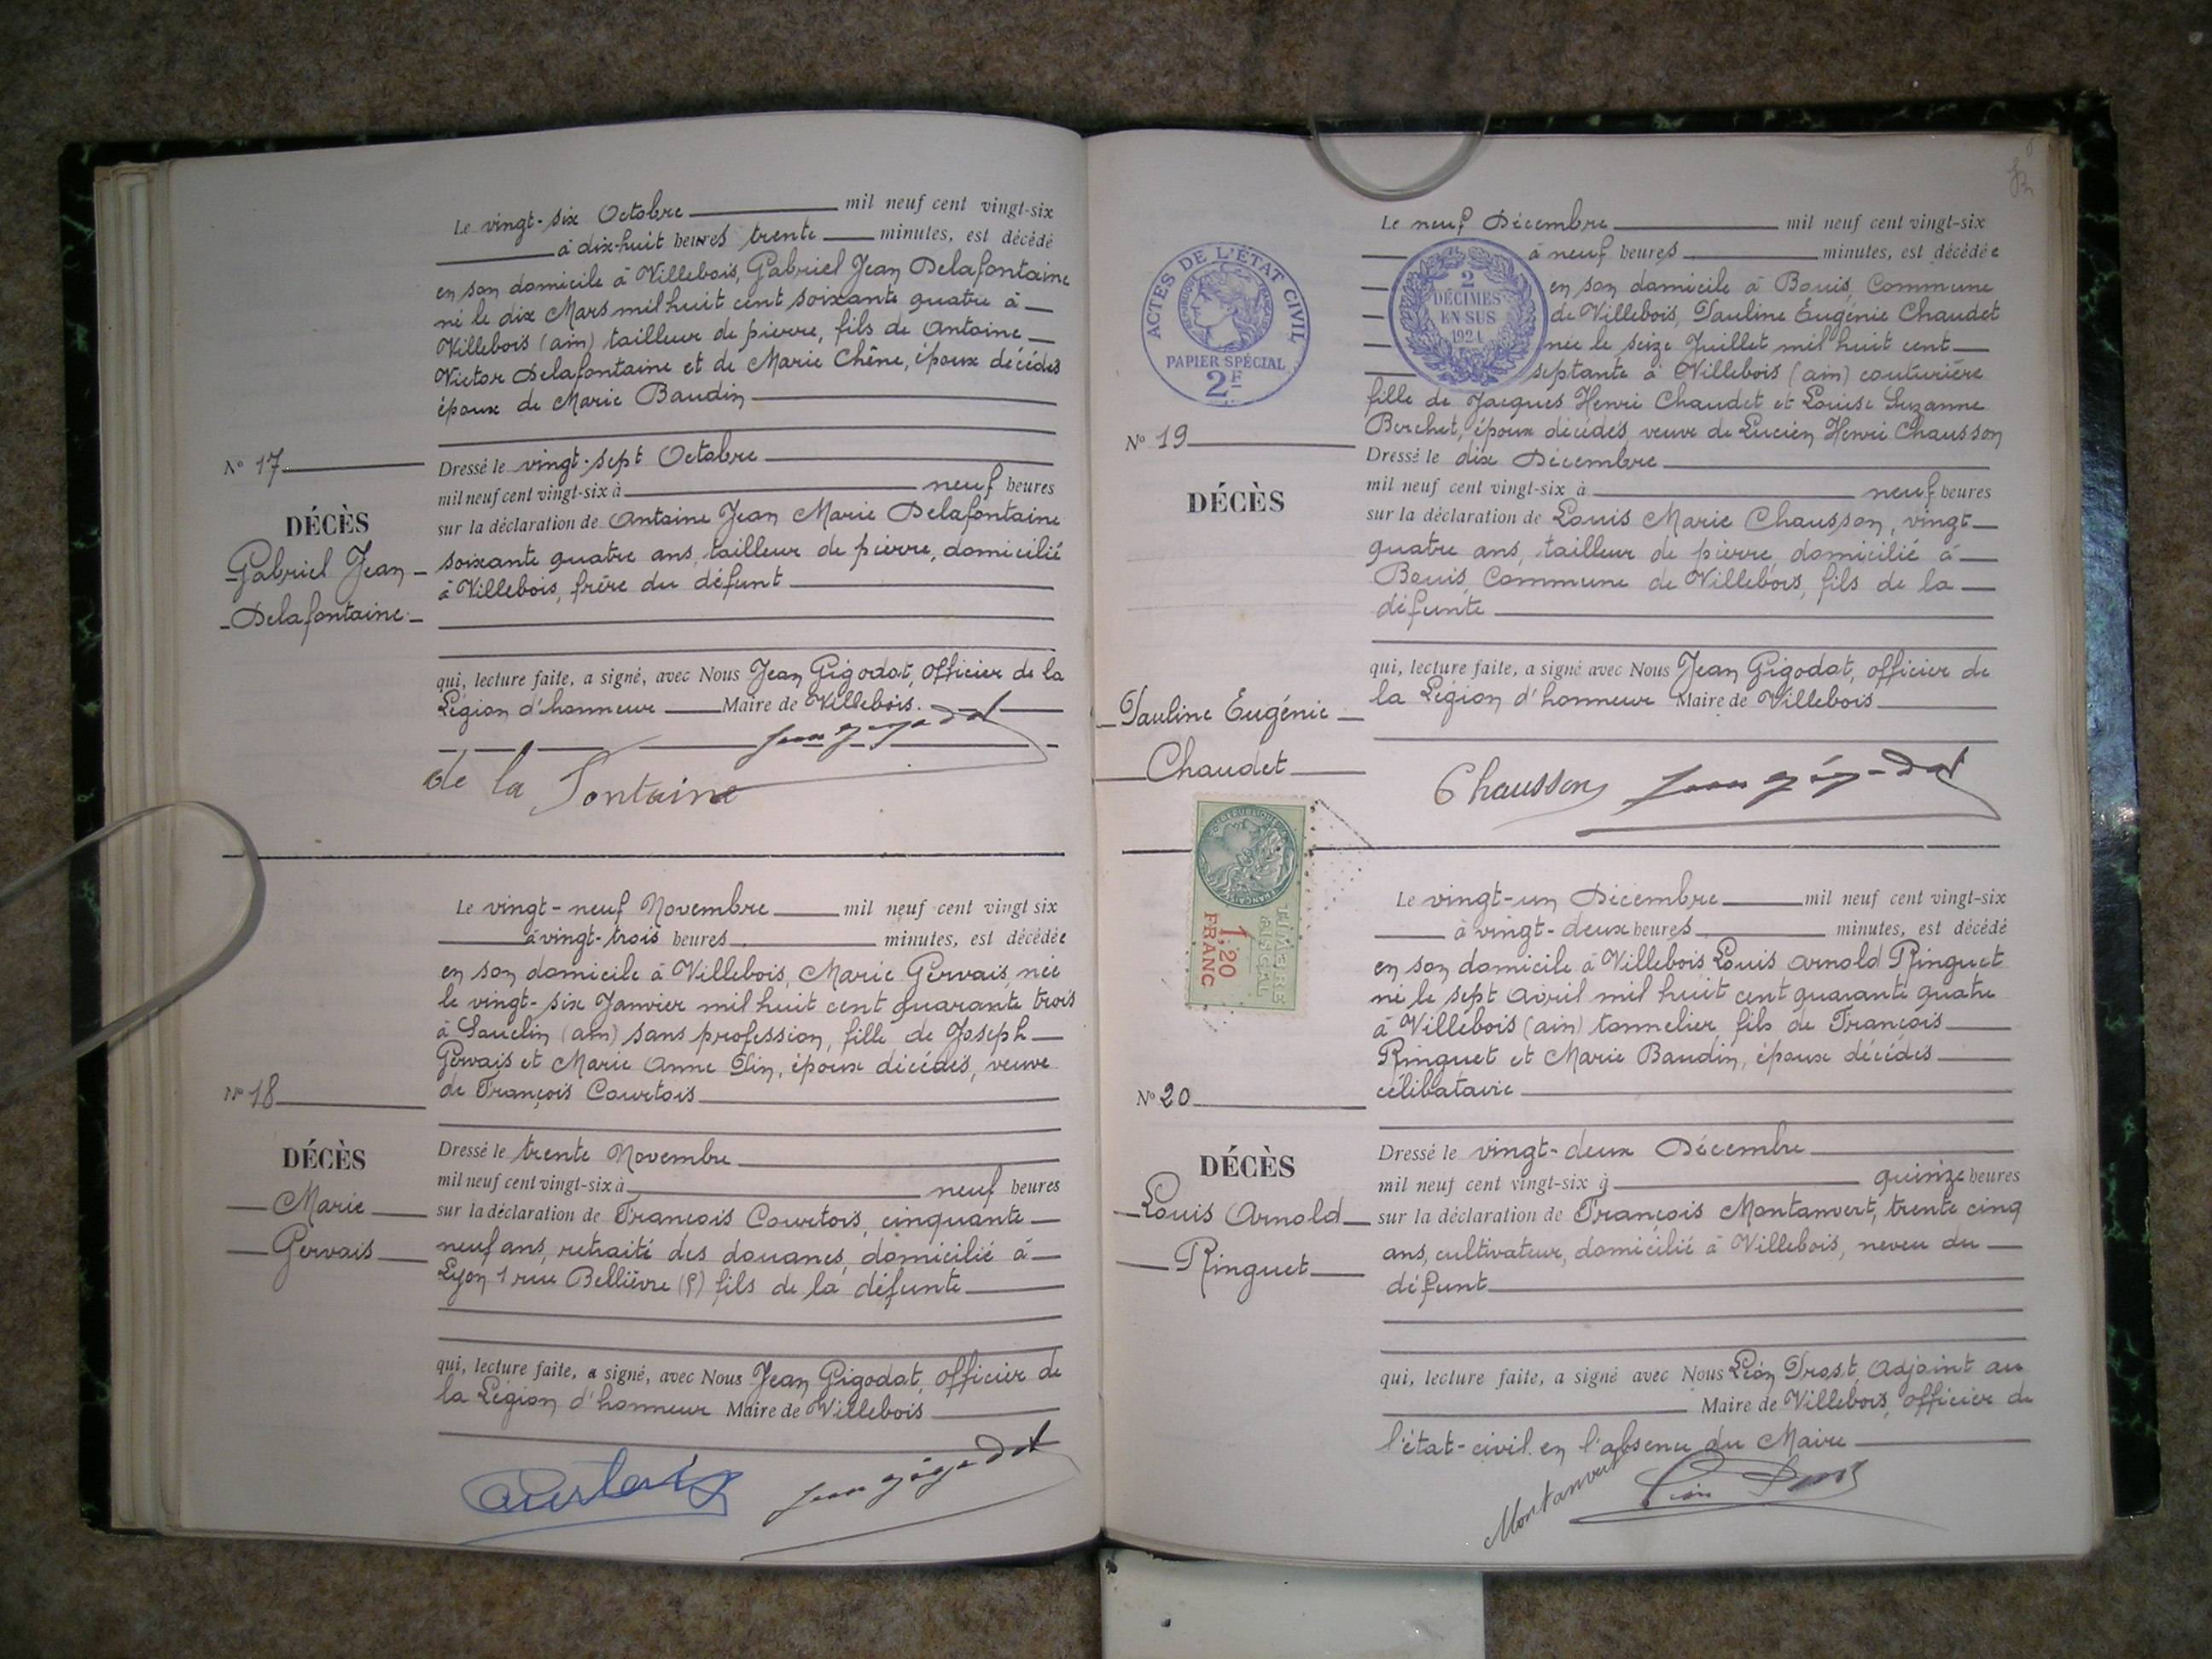 Le vingt-six Octobre mil neuf cent vingt-six
à dix-huit heures trente minutes, est décédé
en son domicile à Villebois, Gabriel Jean Delafontaine
né le dix Mars mil huit cent soixante quatre à
Villebois (ain) tailleur de pierre, fils de Antoine
Victor Delafontaine et de Marie Chêne, époux décédés
époux de Marie Baudin
N° 17
DÉCÈS
Gabriel Jean
Delafontaine
Dressé le vingt-sept Octobre
mil neuf cent vingt-six à neuf heures
sur la déclaration de Antoine Jean Marie Delafontaine
soixante quatre ans, tailleur de pierre, domicilié
à Villebois, frère du défunt
qui, lecture faite, a signé, avec Nous Jean Gigodot, officier de la
Légion d'honneur Maire de Villebois.
Jean Gigodot
de la Fontaine
Le vingt-neuf Novembre mil neuf cent vingt six
à vingt-trois heures minutes, est décédée
en son domicile à Villebois, Marie Gervais, née
le vingt-six Janvier mil huit cent quarante trois
à (ain) sans profession, fille de Joseph
Gervais et Marie Anne Pin, époux décédés, veuve
de François Courtois
N° 18
DÉCÈS
Marie
Gervais
Dressé le trente Novembre
mil neuf cent vingt-six à neuf heures
sur la déclaration de François Courtois, cinquante
neuf ans, retraité des douanes, domicilié à
Lyon 1 rue Bellièvre fils de la défunte
qui, lecture faite, a signé, avec Nous Jean Gigodot, officier de
la Légion d'honneur Maire de Villebois
Courtois Jean Gigodot
ACTES DE L'ÉTAT CIVIL
PAPIER SPÉCIAL
2F
2
DÉCIMES
EN SUS
1924
Le neuf Décembre mil neuf cent vingt-six
à neuf heures minutes, est décédée
en son domicile à Bouis, Commune
de Villebois, Pauline Eugénie Chaudet
née le seize Juillet mil huit cent
septante à Villebois (ain) couturière
fille de Jacques Henri Chaudet et Louise Suzanne
Berchet, époux décédés, veuve de Lucien Henri Chausson
N° 19
DÉCÈS
Pauline Eugénie
Chaudet
Dressé le dix Décembre
mil neuf cent vingt-six à neuf heures
sur la déclaration de Louis Marie Chausson, vingt
quatre ans, tailleur de pierre, domicilié à
Bouis, Commune de Villebois, fils de la
défunte
qui, lecture faite, a signé avec Nous Jean Gigodot, officier de
la Légion d'honneur Maire de Villebois
Chausson Jean Gigodot
TIMBRE
FISCAL
1,20
FRANC
Le vingt-un Décembre mil neuf cent vingt-six
à vingt-deux heures minutes, est décédé
en son domicile à Villebois Louis Arnold Ringuet
né le sept Avril mil huit cent quarante quatre
à Villebois (ain) tonnelier, fils de François
Ringuet et Marie Baudin, époux décédés
célibataire
N° 20
DÉCÈS
Louis Arnold
Ringuet
Dressé le vingt-deux Décembre
mil neuf cent vingt-six à quinze heures
sur la déclaration de François Montanvert, trente cinq
ans, cultivateur, domicilié à Villebois, neveu du
défunt
qui, lecture faite, a signé avec Nous Léon Trost, Adjoint au
Maire de Villebois, officier de
l'état-civil en l'absence du Maire
Montanvert